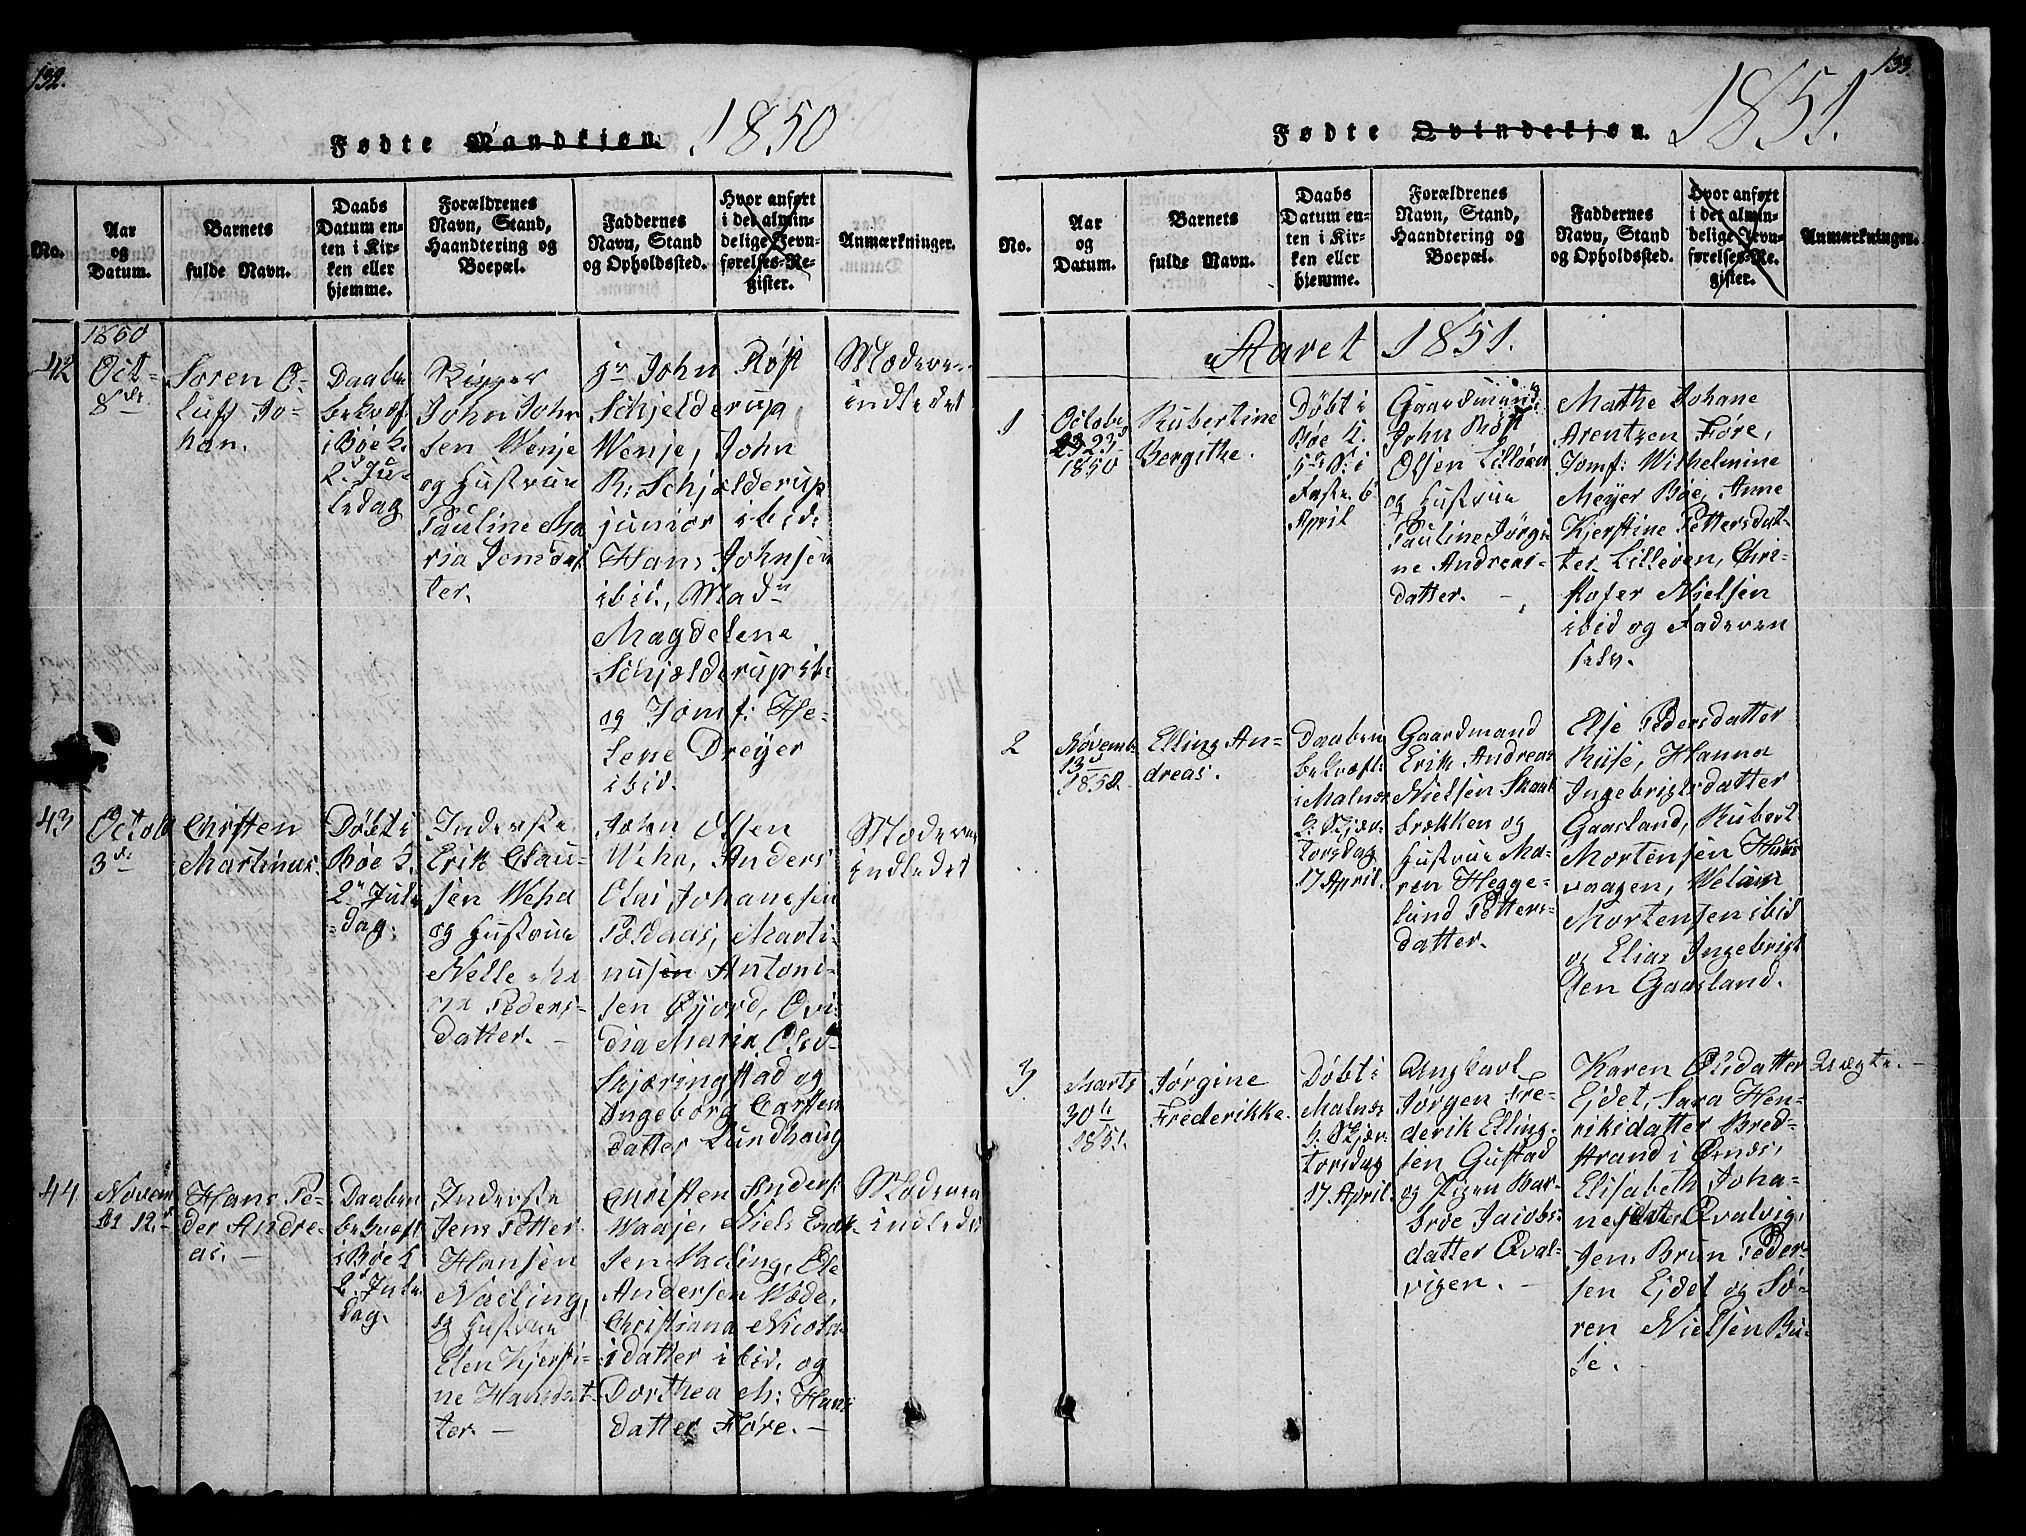 132.
Fødte Mandkjøn. 1850
No.
Aar
og
Datum.
Barnets
fulde Navn.
Daabs
Datum en-
ten i Kir-
ken eller
hjemme.
Forældrenes
Navn, Stand,
Haandtering og
Boepæl.
Faddernes
Navn, Stand
og Opholdssted.
Hvor anført
i det almin-
delige Jevn-
førelses-Re-
gister.
Anmærkninger.
42
1850
Oct-
8de
Søren O-
luf Jo-
han.
Daaben
bekræf.
i Böe K.
2. Ju-
ledag
John John
sen Wenje
og Hustrue
Pauline Ma
ria Jensdat
ter.
Hr John Røst
Schjelderup,
Wenje, John
R: Schjelderup
junior ibid.
Hans Johnsen
ibid., Madm
Magdelene
Schjelderup ib.
og Jomf: He-
lene Dreyer
ibid.
Moderen
indledet
43
Octob
3de
Christen
Martinus.
Døbt i
Böe K.
2. Jule
dag.
Inderste
Erik Clau-
sen Wehn
og Hustrue
Nelle Ma
ria Peders-
datter. -
John Olsen
Wehn, Anders
Johannesen
Marti-
nusen Antoni-
sen Øijord, Ovi-
dia Maria Olsd.
Skjæringstad og
Ingeborg Carsten
datter Lundhaug
Moderen
indledet
44
Novem
12d
Hans Pe-
der Andre-
as. -
Daaben
bekræft
i Böe K
2d Jule
dag.
Inderste
Jens Petter
Hansen
og Hustrue
Elen Kjersti-
ne Hansdat-
ter. -
Christen Anders
Waaje, Niels Erik
sen Vading, Ole
Andersen Wæde,
Christiana Nicola-
idatter ibid. og
Dorthea M: Hans
datter Føre. -
Moderen
indledet
133.
Fødte Qvindekjøn. 1851.
No.
Aar
og
Datum.
Barnets
fulde Navn.
Daabs
Datum en-
ten i Kir-
ken eller
hjemme.
Forældrenes
Navn, Stand,
Haandtering og
Boepæl.
Faddernes
Navn, Stand
og Opholdssted.
Hvor anført
i det almin-
delige Jevn-
førelses-Re-
gister.
Anmærkninger.
Aaret 1851.
1
October
23 23d
1850
Rubertine
Bergithe.
Döbt i
Böe K.
5te S. i
Faste 6
April
Gaardmand
John Röst
Olsen Lilleven
og Hustrue
Pauline Jörgi
ne Andreas-
datter. -
Mathe Johane
Arentzen Føre,
Jomf: Wilhelmine
Meyer Böe, Anne
Kjerstine Pettersdat-
ter Lilleven, Chri-
stofer Nielsen
ibid og Faderen
selv.
2
Novemb
13d
1850.
Elling An-
dreas.
Daaben
bekræft.
i Malnæs
S. Skjær
torsdag
17 April.
Gaardmand
Erik Andreas
Nielsen Skaal
brækken og
Hustrue Ma-
ren Hegge-
lund Petters-
datter.
Else Pedersdatter
Ruse, Hanna
Ingebrigtsdatter
Gaasland, Rubert
Mortensen Haus
vaagen, Welam
Mortensen ibid
og Elias Ingebrigt
sen Gaasland.
3
Marts
30te
1851.
Jørgine
Frederikke.
Döbt i
Malnæs
S. Skjær
torsdag
17 April.
Ungkarl
Jörgen Fre-
derik Elling-
sen Gustad
og Pigen Bar-
broe Jacobs-
datter Qval-
vigen. -
Karen Olsdatter
Ejdet, Sara Hen-
riksdatter Bred-
strand i Öxnæs,
Elisabeth Joha-
nesdatter Qvalvig,
Jens Brun Peder-
sen Ejdet og Sö-
ren Nielsen Bu-
se. -
Uægte. -